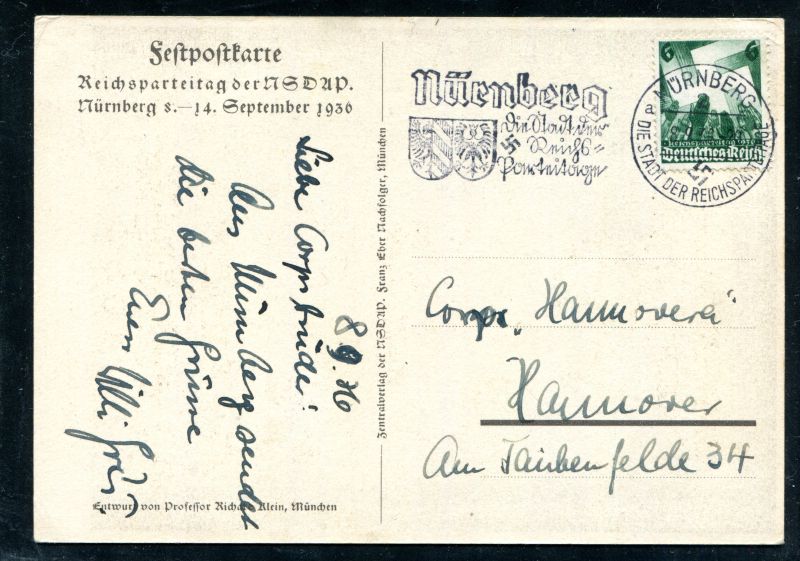 Festpostkarte
Reichsparteitag der NSDAP.
Nürnberg 8.—14. September 1936
8 9. 36
Liebe Corpsbrüder!
Aus Nürnberg sendet
die besten Grüsse
Euer Willi
Entwurf von Professor Richard Klein, München
Zentralverlag der NSDAP. Franz Eher Nachfolger, München
Nürnberg
Die Stadt der
Reichs=
Parteitage
6 6
Reichsparteitag 1936
Deutsches Reich
NÜRNBERG
a
DIE STADT DER REICHSPARTEITAGE
Corps „Hannovera"
Hannover
Am Taubenfelde 34